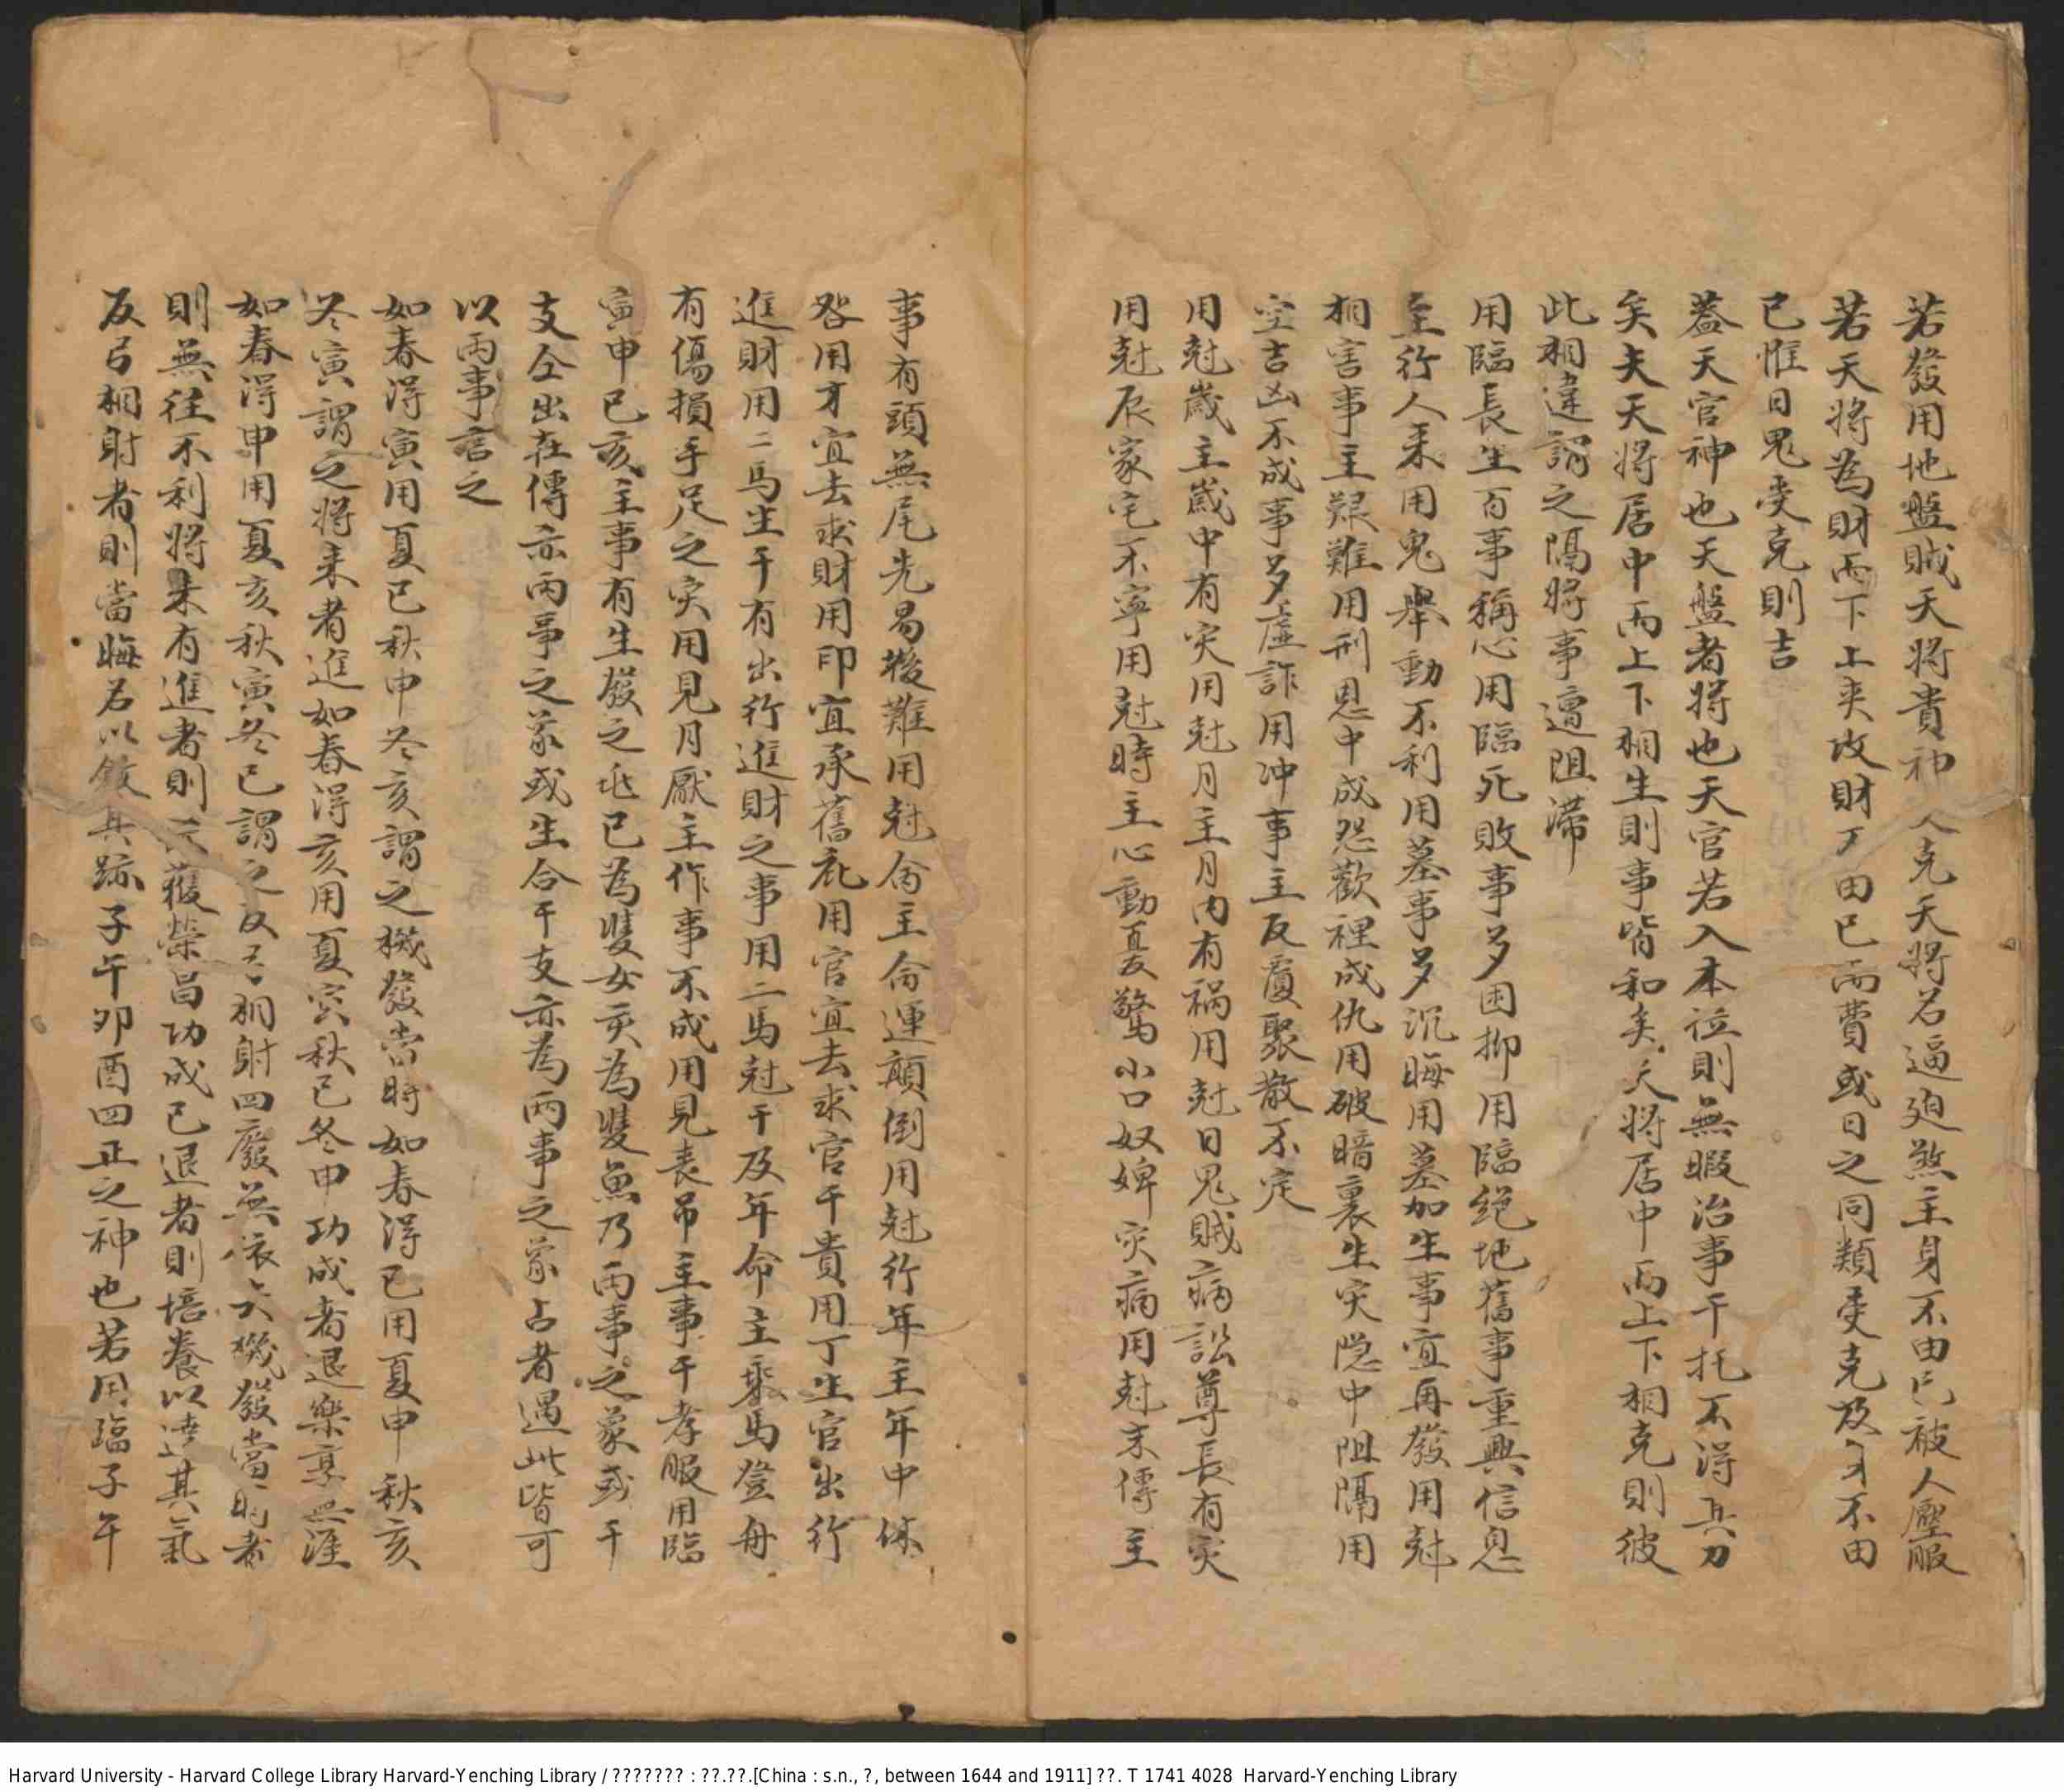 若發用地盤賊天將貴神人克天將名逼迫煞主身不由己被人壓服
若天將為財而下上夾攻財不由己而費或日之同類受克及身不由
已惟日鬼受克則吉
蓋天官神也天盤者將也天官若入本位則無暇治事干托不得其力
矣夫天將居中而上下相生則事皆和矣天將居中而上下相克則彼
此相違謂之隔將事邅阻滯
用臨長生百事稱心用臨死敗事多困抑用臨絕地舊事重興信息
至行人来用鬼舉動不利用墓事多沉晦用墓加生事宜再發用尅
相害事主艱難用刑恩中成怨歡裡成仇用破暗裏生灾隐中阻隔用
空吉凶不成事多虛詐用冲事主反覆聚散不定
用尅歲主歲中有灾用尅月主月內有禍用尅日鬼賊病訟尊長有灾
用尅辰家宅不寧用尅時主心動憂驚小口奴婢灾病用尅末傳主
事有頭無尾先易後難用尅命主命運顛倒用尅行年主年中休
咎用才宜去求財用印宜承舊庇用官宜去求官干貴用丁生官出行
進財用二馬生干有出行進財之事用二馬尅干及年命主乘馬登舟
有傷損手足之灾用見月厭主作事不成用見喪吊主事干孝服用臨
寅申巳亥主事有生發之兆巳為雙女亥為雙魚乃兩事之象或干
支仝出在傳亦兩事之象或生合干支亦為兩事之象占者遇此皆可
以兩事言之
如春得寅用夏巳秋申冬亥謂之機發當時如春得巳用夏申秋亥
冬寅謂之將来者進如春得亥用夏寅秋巳冬申功成者退樂享無涯
如春得申用夏亥秋寅冬巳謂之反弓相射四廢無依大機發當時者
則無往不利將来有進者則必獲榮昌功成已退者則培養以達其氣
反弓相射者則當晦名以斂其跡子午卯酉四正之神也若用臨子午
Harvard University - Harvard College Library Harvard-Yenching Library / ??????? : ??.??.[China : s.n., ?, between 1644 and 1911] ??. T 1741 4028 Harvard-Yenching Library